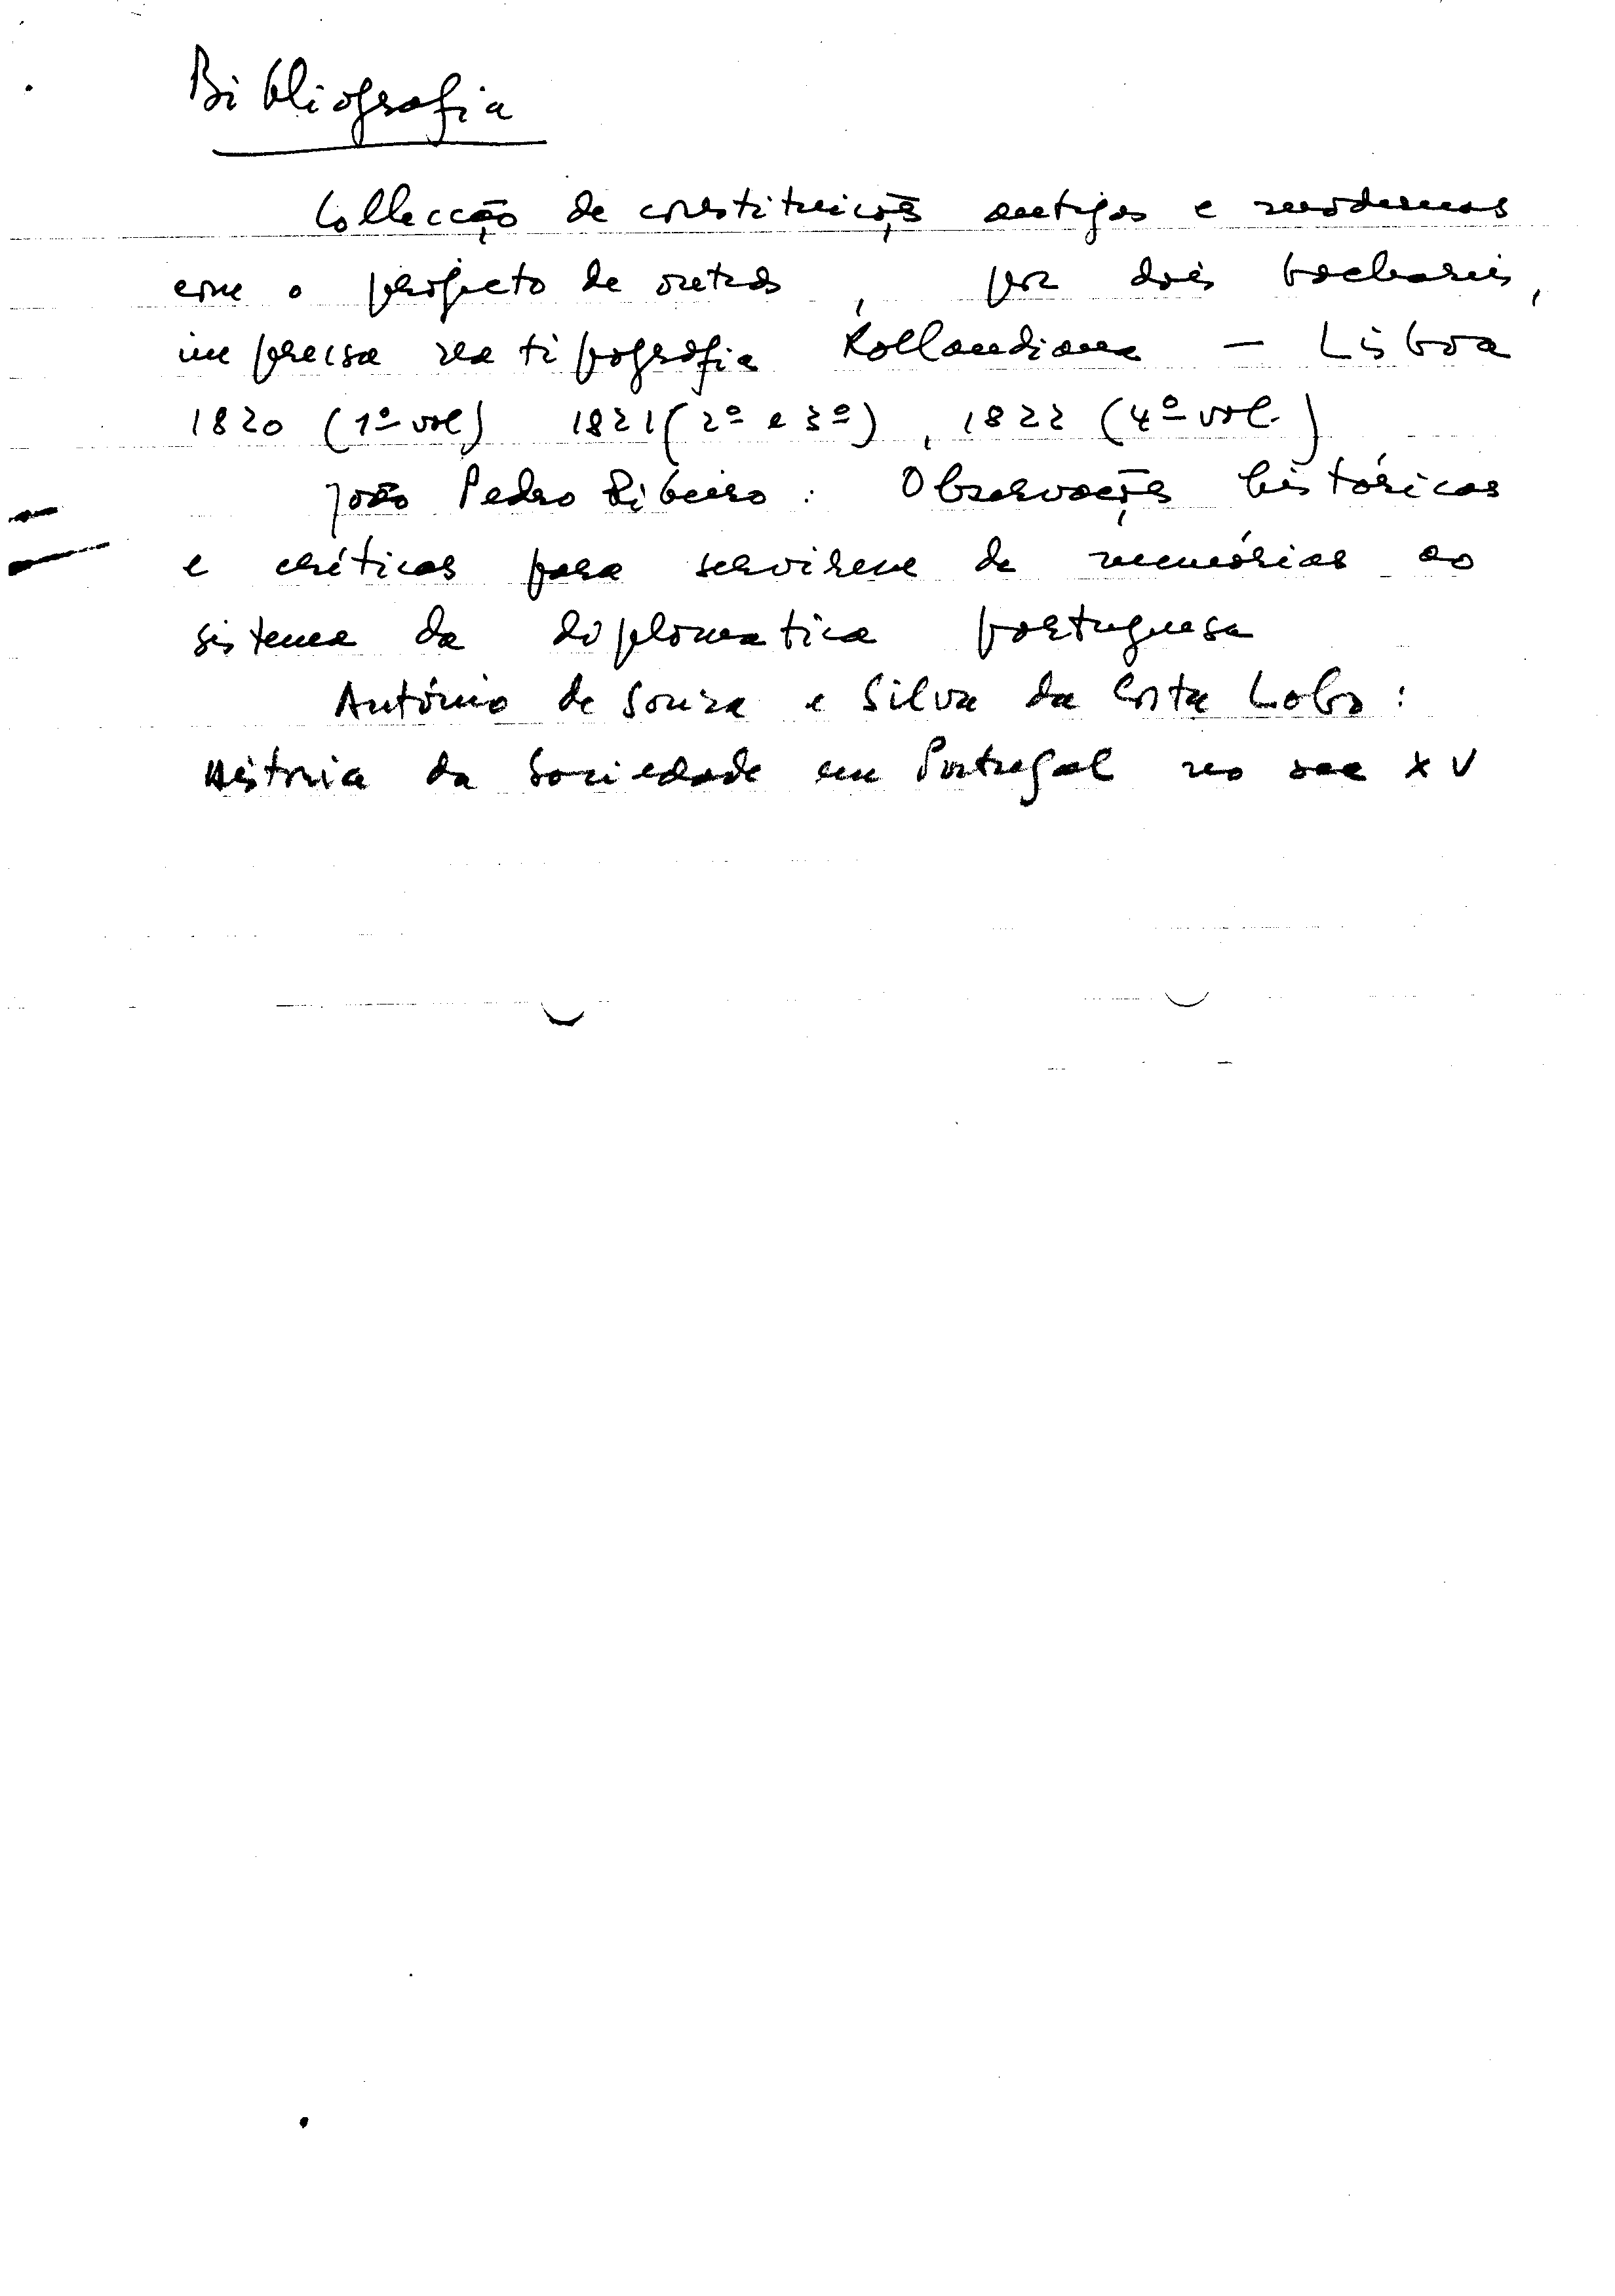 Bibliografia
Collecção de constituições antigas e modernas
com o projecto de outras, por dois bachareis,
impressa na tipografia Rollandiana - Lisboa
1820 (1º vol) 1821 (2º e 3º), 1822 (4º vol.)
João Pedro Ribeiro: Observações históricas
e críticas para servirem de memórias ao
sistema da diplomatica portuguesa
António de Souza e Silva da Costa Lobo:
História da Sociedade em Portugal no sec XV